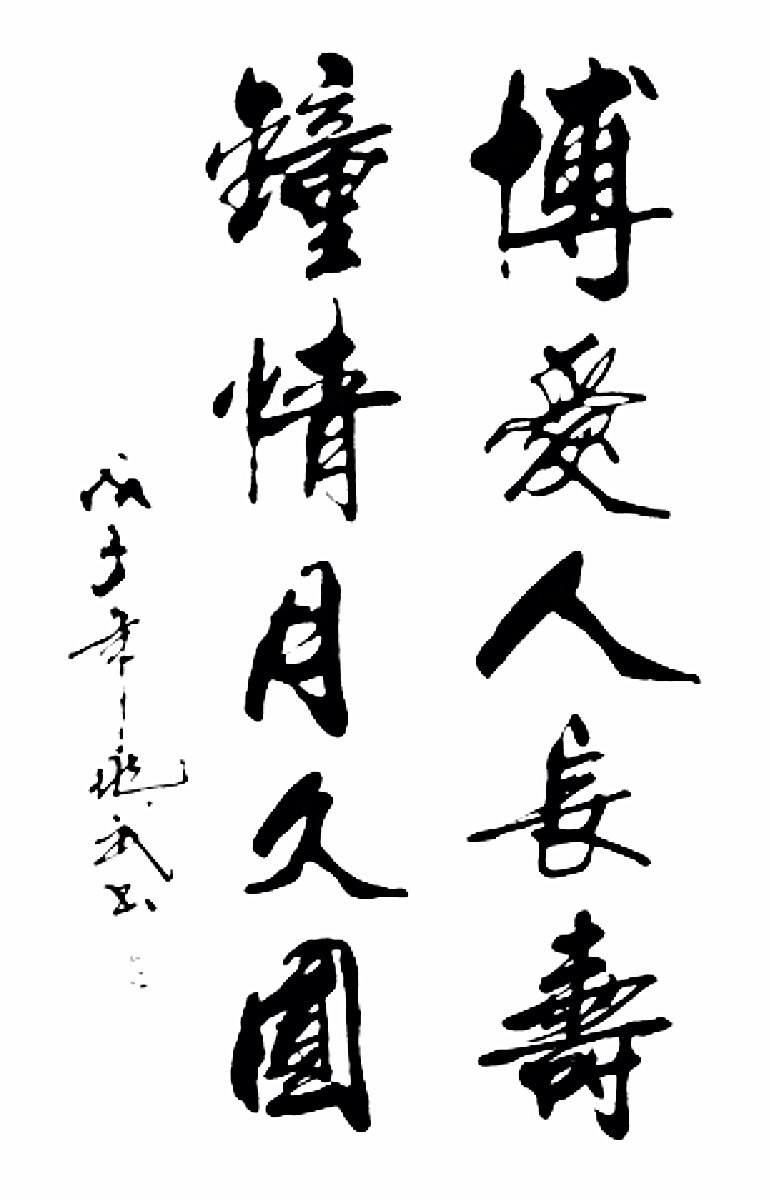 博愛人長壽
鐘情月久圓
戊子年 武书